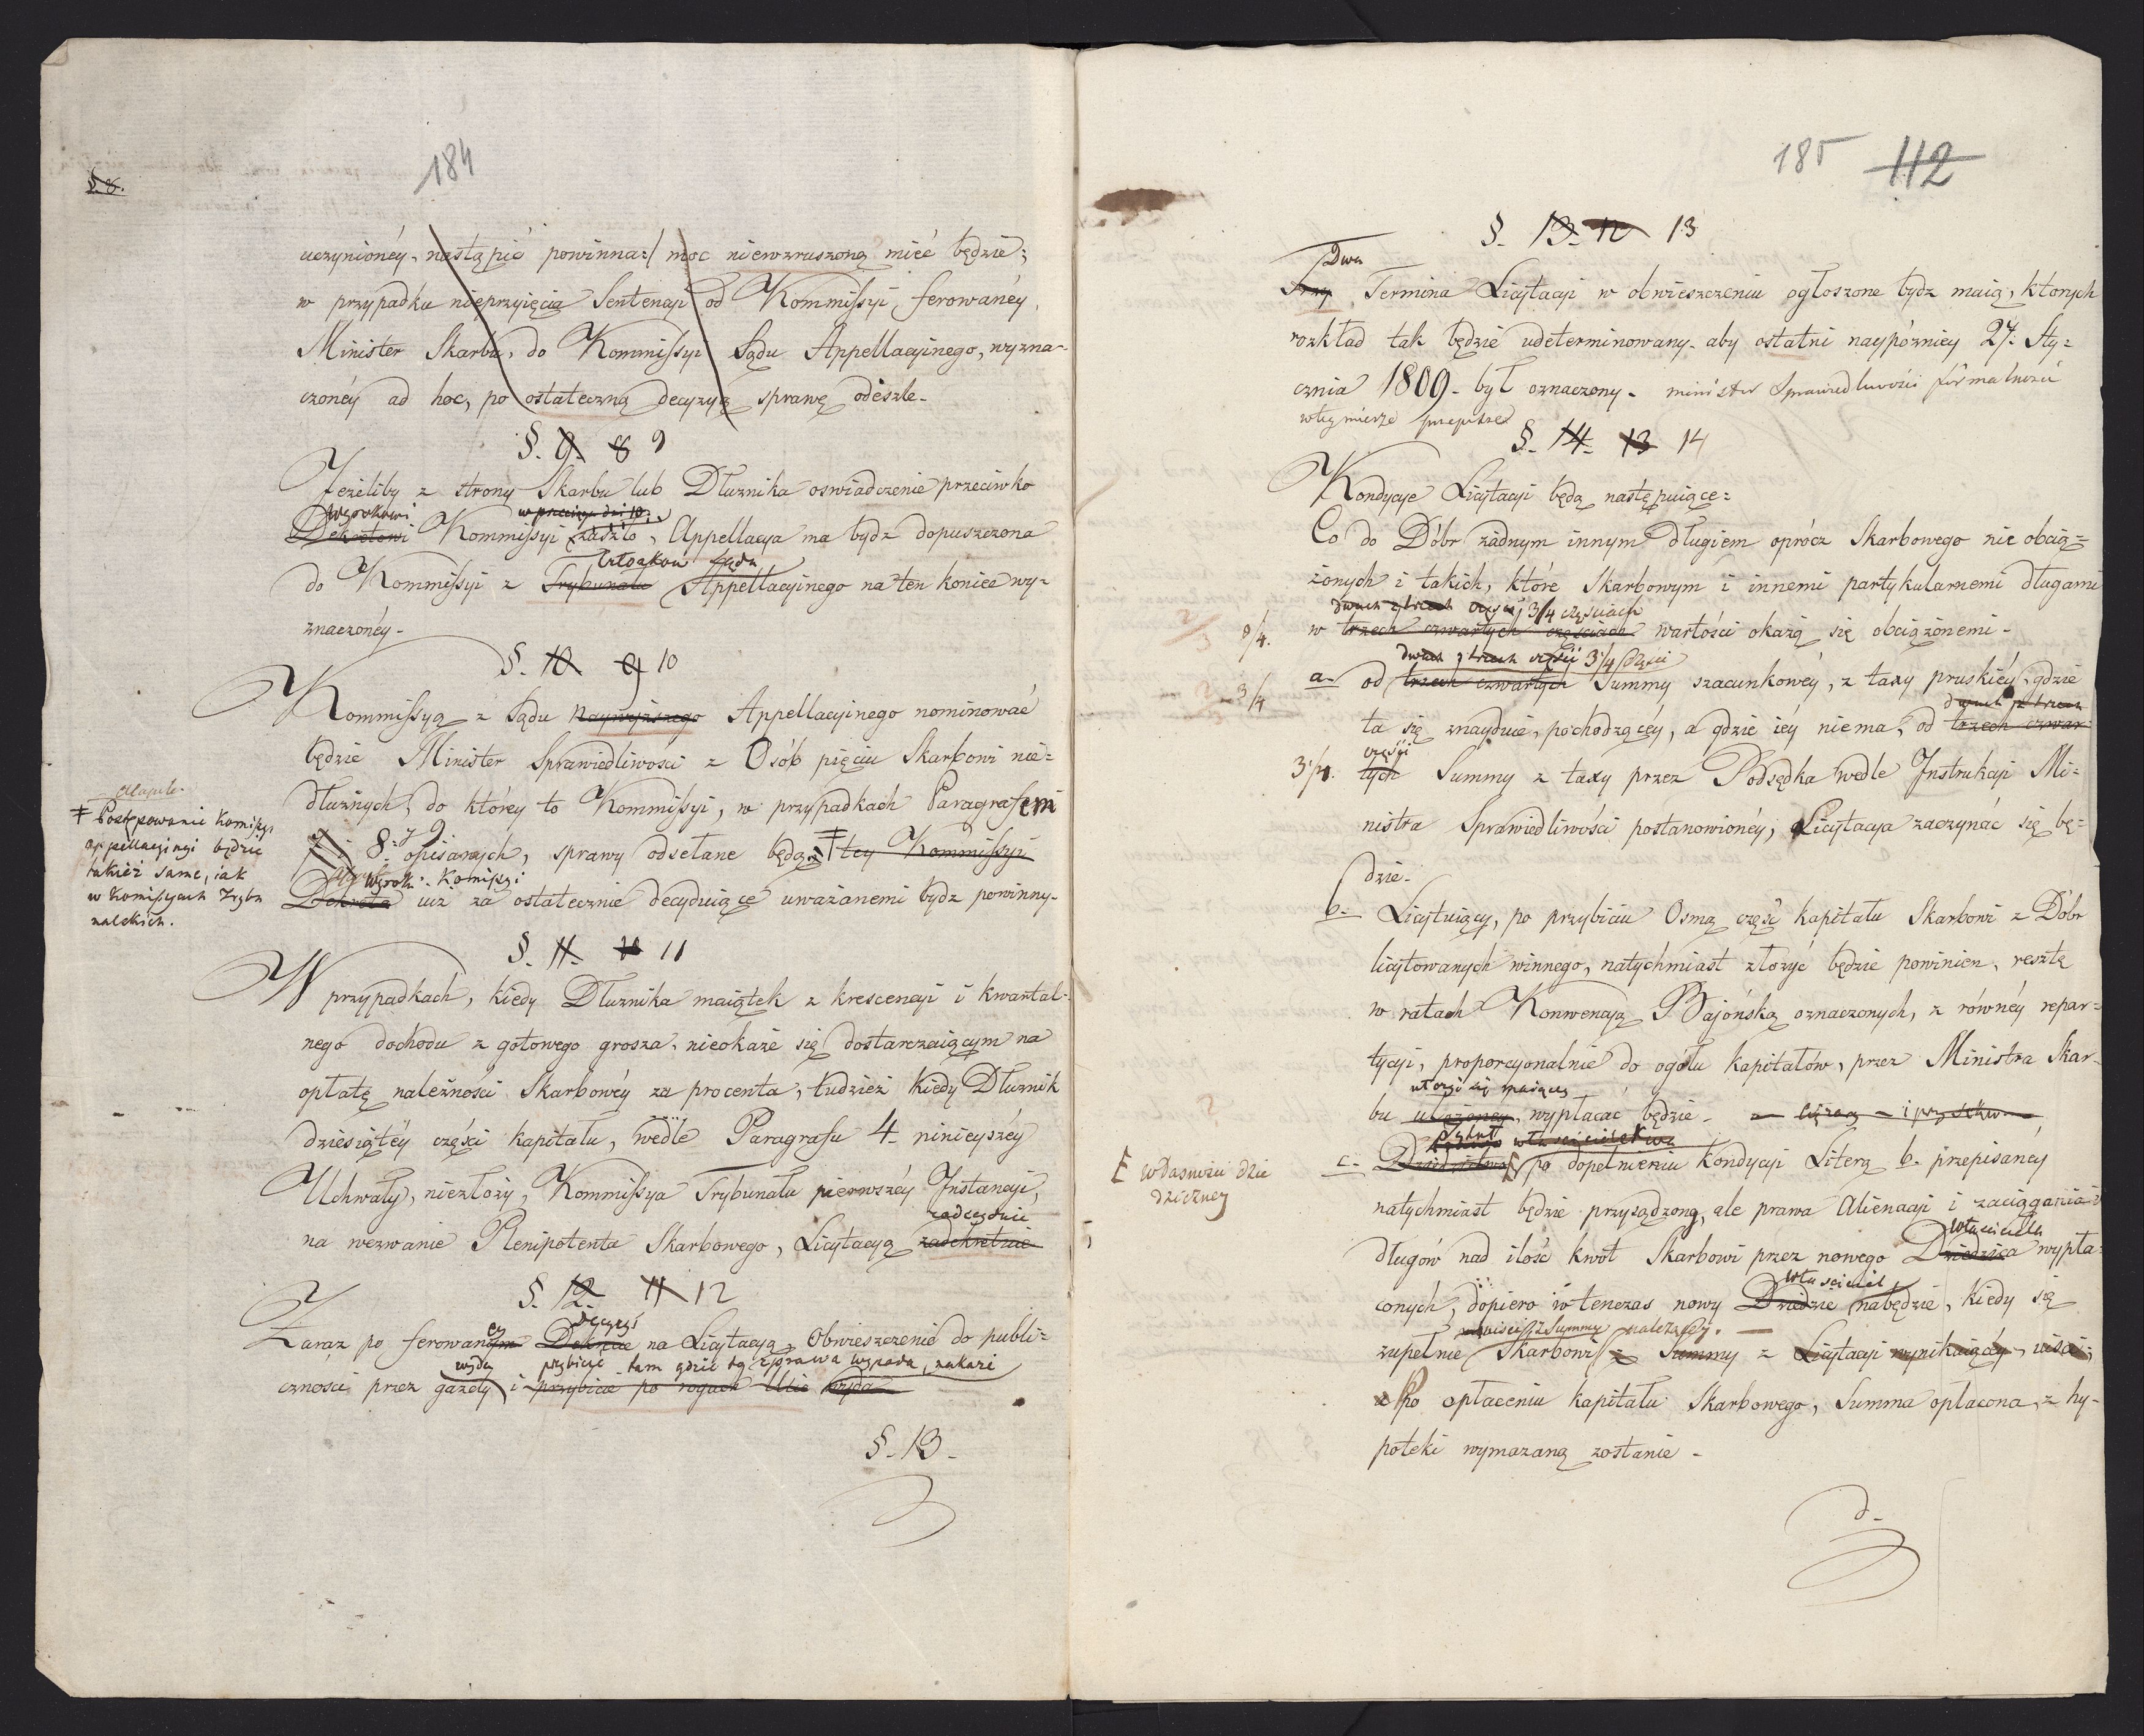 184
§. 8.
uczynionéy, nastąpić powinna:/ moc niewzruszoną mieć będzie;
w przypadku nieprzyięcia Sentencyi od Kommissyi ferowanéy,
Minister Skarbu, do Kommissyi Sądu Appellacyinego, wyzna=
czonéy ad hoc, po ostateczną decyzyą sprawę odeszle.
§. 9. 8 9
Jeżeliby z strony Skarbu lub Dłużnika oswiadczenie przeciwko
Wyrokowi w przeciągu dni 10.
Dekretowi Kommissyi zaszło, Appellacya ma bydź dopuszczona
Członków Sądu
do Kommissyi z Trybunału Appellacyinego na ten koniec wy=
znaczonéy.
§. 10 9 10
Kommissyą z Sądu Naywyższego Appellacyinego nominować
będzie Minister Sprawiedliwości z Osób pięciu Skarbowi nie=
dłużnych, do którey to Kommissyi, w przypadkach Paragrafem
8. 9 opisanych, sprawy odsełane będą. ‡ tey Kommissyi
Wyroki Komissyi
Dekreta iuż za ostatecznie decyduiące uważanemi bydź powinny.
‡ Postępowanie Komissyi
appellacyinéy będzie
takież same, iak
w Komissyach Trybu
nalskich.
§. 11. 10 11
W przypadkach, kiedy Dłużnika maiątek z krescencyi i kwartal=
nego dochodu z gotowego grosza, nieokaże się dostarczaiącym na
opłatę należności Skarbowéy za procenta, tudzież kiedy Dłużnik
dziesiątéy części kapitału, wedle Paragrafu 4. ninieyszéy
Uchwały, niezłoży, Kommissya Trybunału pierwszéy Instancyi,
na wezwanie Plenipotenta Skarbowego, Licytacyą zadekretuie
§. 12. 11 12
decyzyi
Zaraz po ferowanym Dekrecie na Licytacyą, Obwieszczenie do publi=
wyda przybicie tam gdzie tego sprawa wypada, nakaże
czności przez gazety i przybicie po rogach Ulic wyda
§. 13.
185 112
§. 13. 12 13
Dwa
Trzy Termina Licytacyi w obwieszczeniu ogłoszone bydź maią, których
rozkład tak będzie udeterminowany, aby ostatni naypózniéy 27. Sty=
cznia 1809. był oznaczony. minister Sprawiedliwości formalność
w téy mierze przepisze
§. 14. 13 14
Kondycye Licytacyi będą następuiące:
Co do Dóbr żadnym innym długiem oprócz Skarbowego nie obcią=
żonych i takich, które Skarbowym i innemi partykularnemi długami
dwuch z trzech części 3/4 częściach
w trzech czwartych częściach wartości okażą się obciążonemi.
dwuch z trzech części 3/4 części
3/4
a. od trzech czwartych Summy szacunkowéy, z taxy pruskiéy, gdzie
dwuch z trzech
ta się znayduie, pochodzącéy, a gdzie iéy niema, od trzech czwar
części
3/4. tych Summy z taxy przez Podsędka wedle Instrukcyi Mi=
nistra Sprawiedliwości postanowionéy, Licytacya zaczynać się bę=
dzie.
b. Licytuiący, po przybiciu Osmą część kapitału Skarbowi z Dóbr
licytowanych winnego, natychmiast złożyć będzie powinien, resztę
w ratach Konwencyą Bajońską oznaczonych, z równéy repar=
tycyi, proporcyonalnie do ogółu kapitałów, przez Ministra Skar=
ułożyć się maiącey
bu ułożoney, wypłacać będzie.
Tytuł właścicielstwa
c. Dziedzictwo po dopełnieniu Kondycyi Literą b. przepisanéy
Ł własności dzie
dziczney
natychmiast będzie przysądzoną, ale prawa Alienacyi i zaciągania
Właściciela
długów nad ilość kwot Skarbowi przez nowego Dziedzica wypła=
Właściciel
conych, dopiero wtenczas nowy Dziedzic nabędzie, kiedy się
uiści z Summy należącéy.
zupełnie Skarbowi z Summy z Licytacyi wynikaiącéy, uiści;
Po opłaceniu kapitału Skarbowego, Summa opłacona, z hy=
poteki wymazaną zostanie.
d.